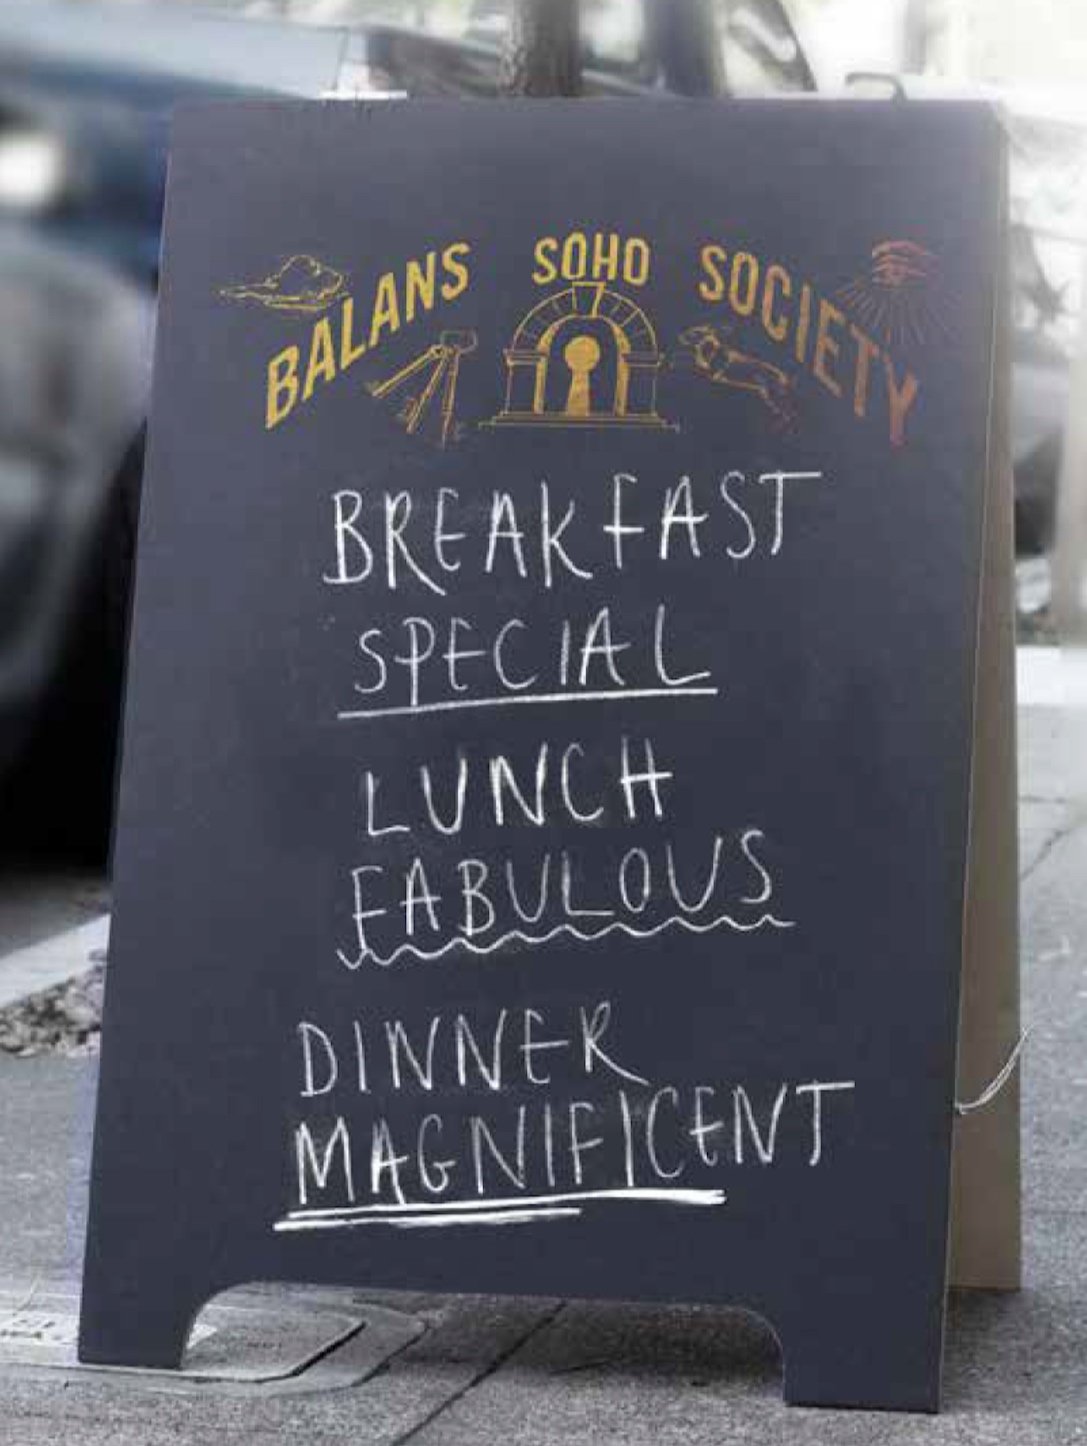 BALANS SOHO SOCIETY
BREAKFAST
SPECIAL
LUNCH
FABULOUS
DINNER
MAGNIFICENT